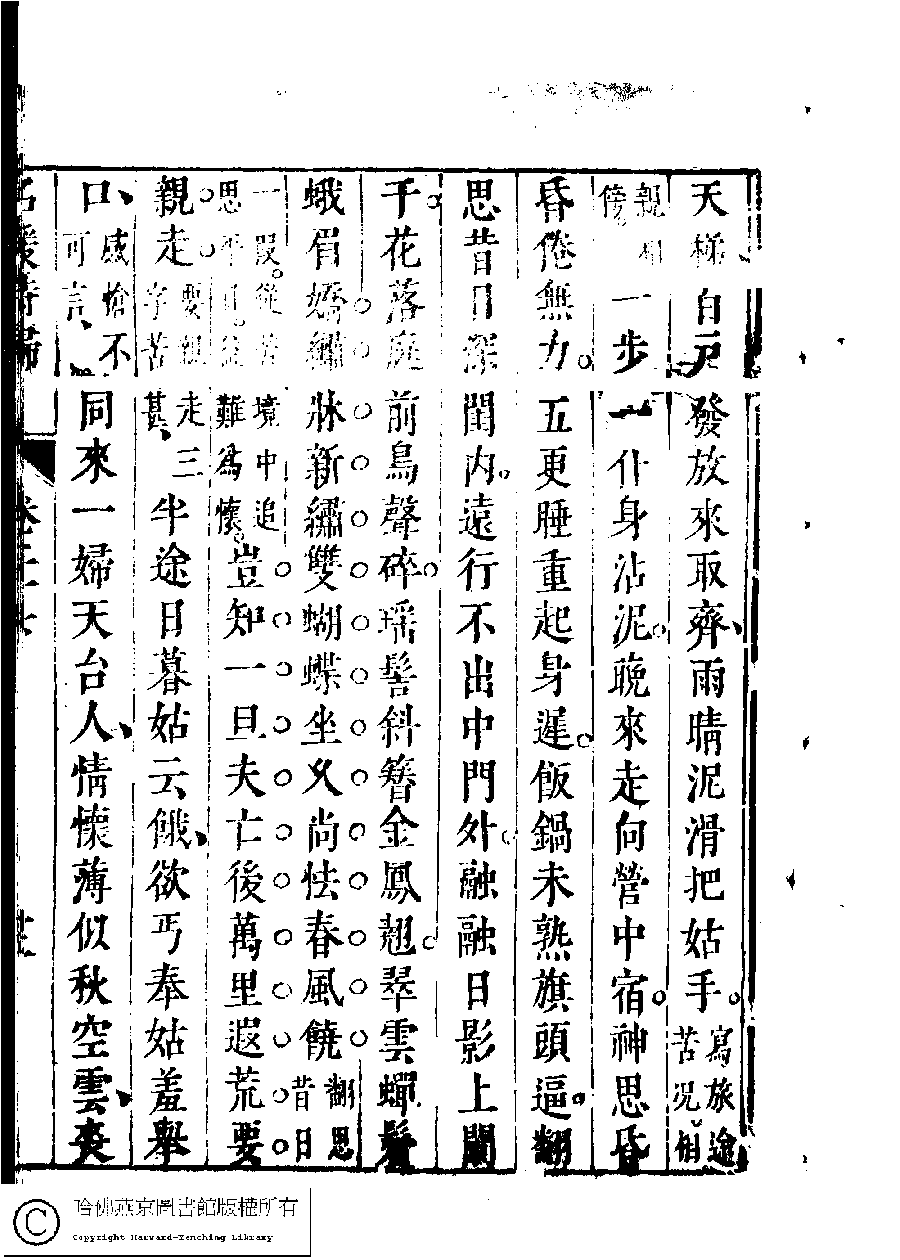 天梯百戸發放來取齊雨晴泥滑把姑手寫旅途苦况相
親相傍一步一仆身沾泥晚來走向營中宿神思昏
昏倦無力五更睡重起身遲飯鍋未熟旗頭逼翻
思昔日深閨内遠行不出中門外融融日影上闌
干花落庭前鳥聲碎瑶髻斜簪金鳳翹翠雲蟬鬢
蛾眉嬌繡牀新繡雙蝴蝶坐久尚怯春風饒翻思昔日
一段從苦境中追思平日難為懷豈知一旦夫亡後萬里遐荒要
親走要親走三字苦甚半途日暮姑云餓欲丐奉姑羞舉
口感愴不可言同來一婦天台人情懷薄似秋空雲喪
名媛詩歸
哈佛燕京圖書館版權所有
Copyright Harvard-Yenching Library